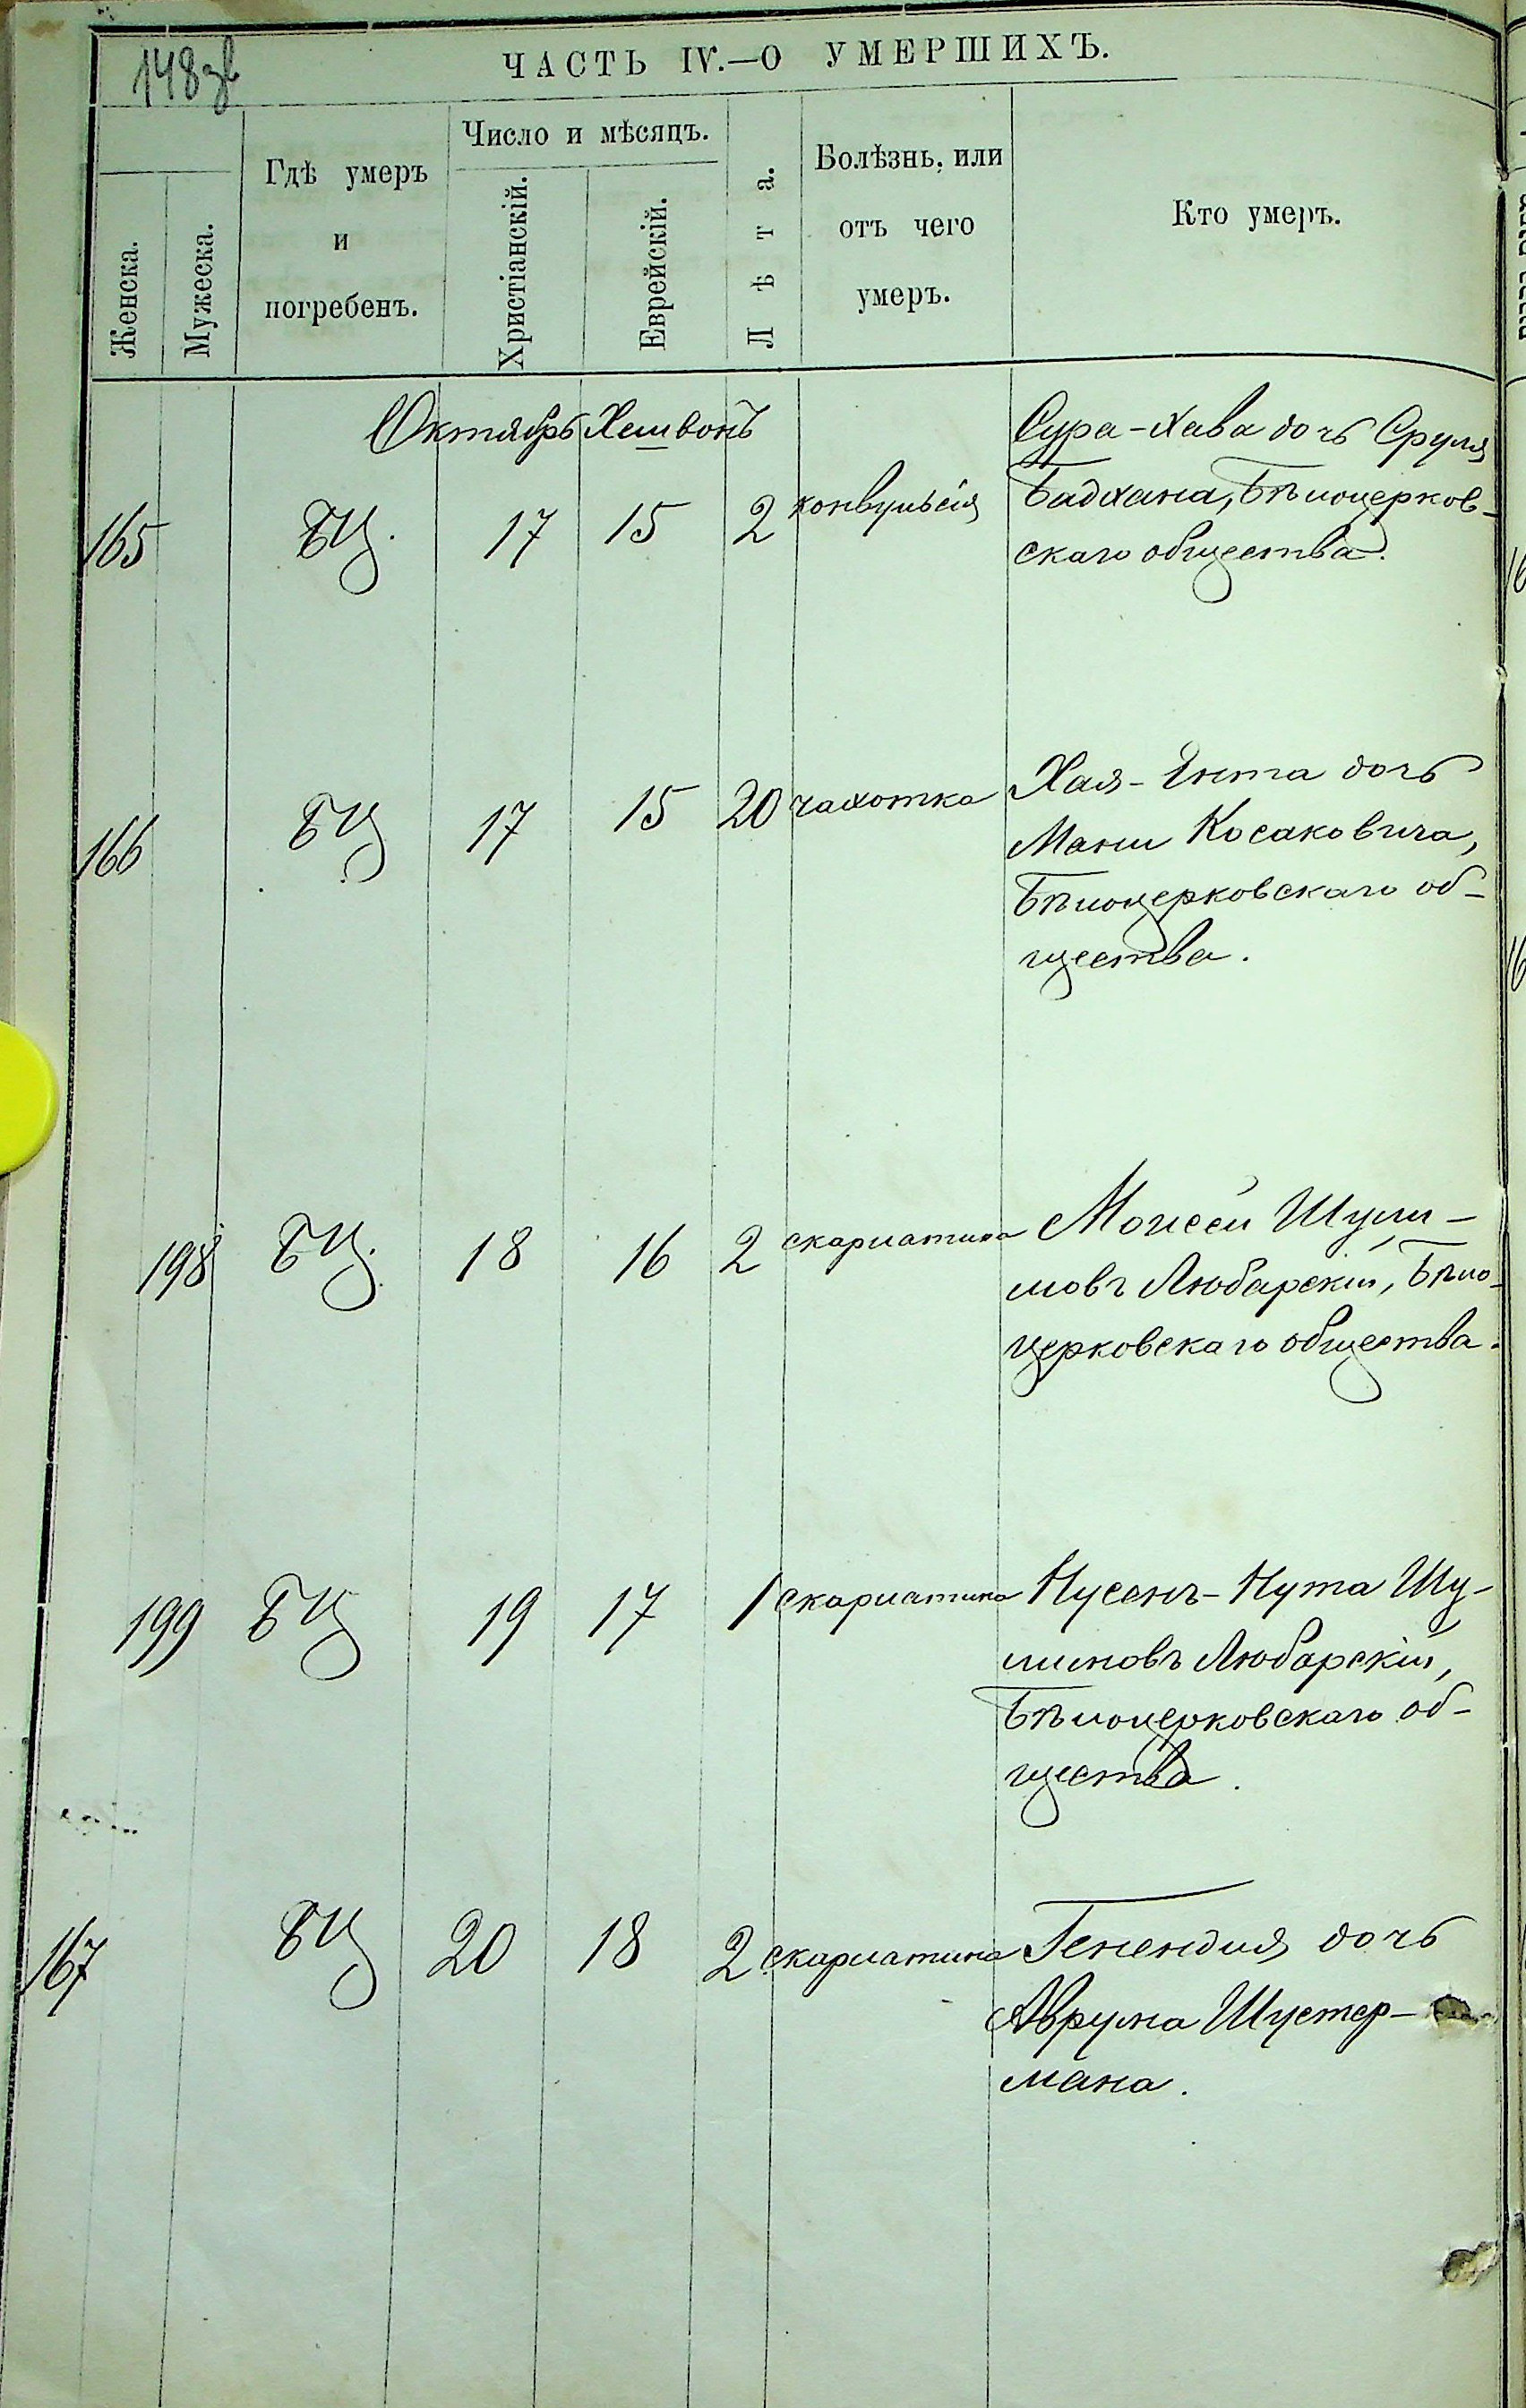 148зв
ЧАСТЬ IV.—О УМЕРШИХЪ.
Женска.
Мужеска.
Гдѣ умеръ
и
погребенъ.
Число и мѣсяцъ.
Христіанскій.
Еврейскій.
Лѣта.
Болѣзнь, или
отъ чего
умеръ.
Кто умеръ.
Октябрь Хешвонъ
165 БЦ. 17 15 2 конвульсія
Сура-Хава дочь Сруля
Бадхана, Бѣлоцерков-
скаго общества.
166 БЦ 17 15 20 чахотка
Хая-Ента дочь
Мани Косаковича,
Бѣлоцерковскаго об-
щества.
198 БЦ. 18 16 2 скарлатина
Моисей Шули-
мовъ Любарскій, Бѣло-
церковскаго общества.
199 БЦ 19 17 1 скарлатина
Нусенъ-Нута Шу-
лимовъ Любарскій,
Бѣлоцерковскаго об-
щества.
167 БЦ 20 18 2 скарлатина
Генендля дочь
Аврума Шустер-
мана.